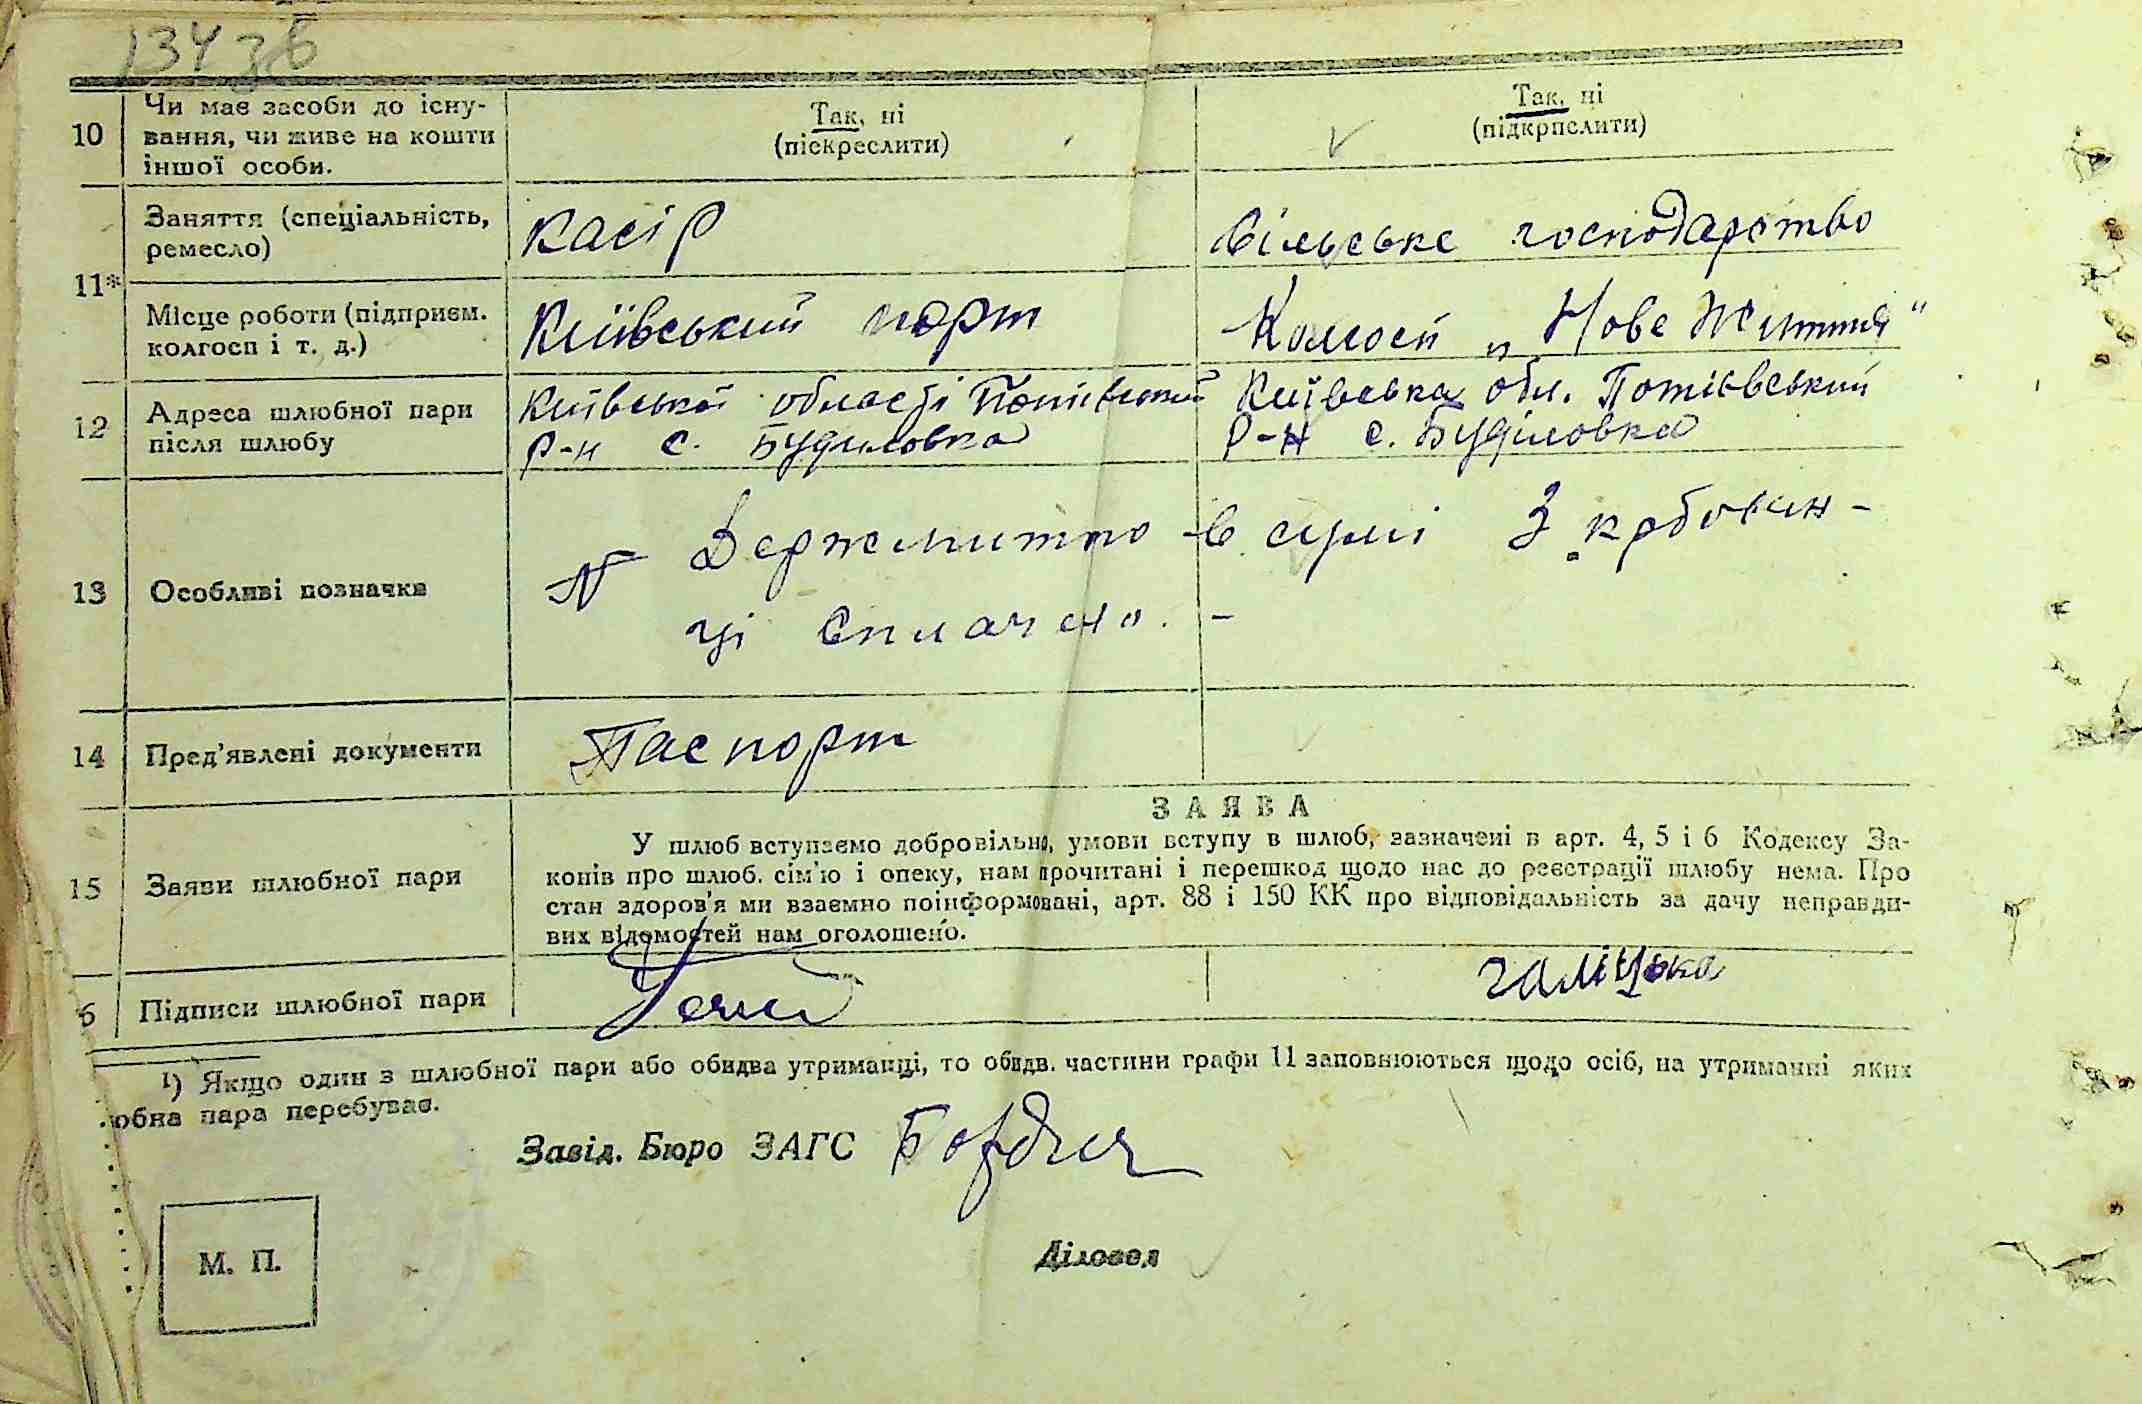 134 зб
10 Чи має засоби до існу-
вання, чи живе на кошти
іншої особи.
Так, ні
(піекреслити)
Так, ні
(підкрпслити)
11*
Заняття (спеціальність,
ремесло)
касір
сільське господарство
Місце роботи (підприєм.
колгосп і т. д.)
Київський порт
Колгосп „Нове Життя"
12 Адреса шлюбної пари
після шлюбу
Київської області
р-н с. Будиловка
Київська обл.
р-н с. Буділовка
13 Особливі позначки
Держмитто в сумі 3 крбован-
ці сплачен.
14 Пред'явлені документи
Паспорт
15 Заяви шлюбної пари
ЗАЯВА
У шлюб вступаємо добровільно, умови вступу в шлюб, зазначені в арт. 4, 5 і 6 Кодексу За-
конів про шлюб. сім'ю і опеку, нам прочитані і перешкод щодо нас до реєстрації шлюбу нема. Про
стан здоров'я ми взаємно поінформовані, арт. 88 і 150 КК про відповідальність за дачу неправди-
вих відомостей нам оголошено.
6 Підписи шлюбної пари
галіцька
¹) Якщо один з шлюбної пари або обидва утриманці, то обидв. частини графи 11 заповнюються щодо осіб, на утриманні яких
юбна пара перебуває.
Завід. Бюро ЗАГС
М. П.
Діловод